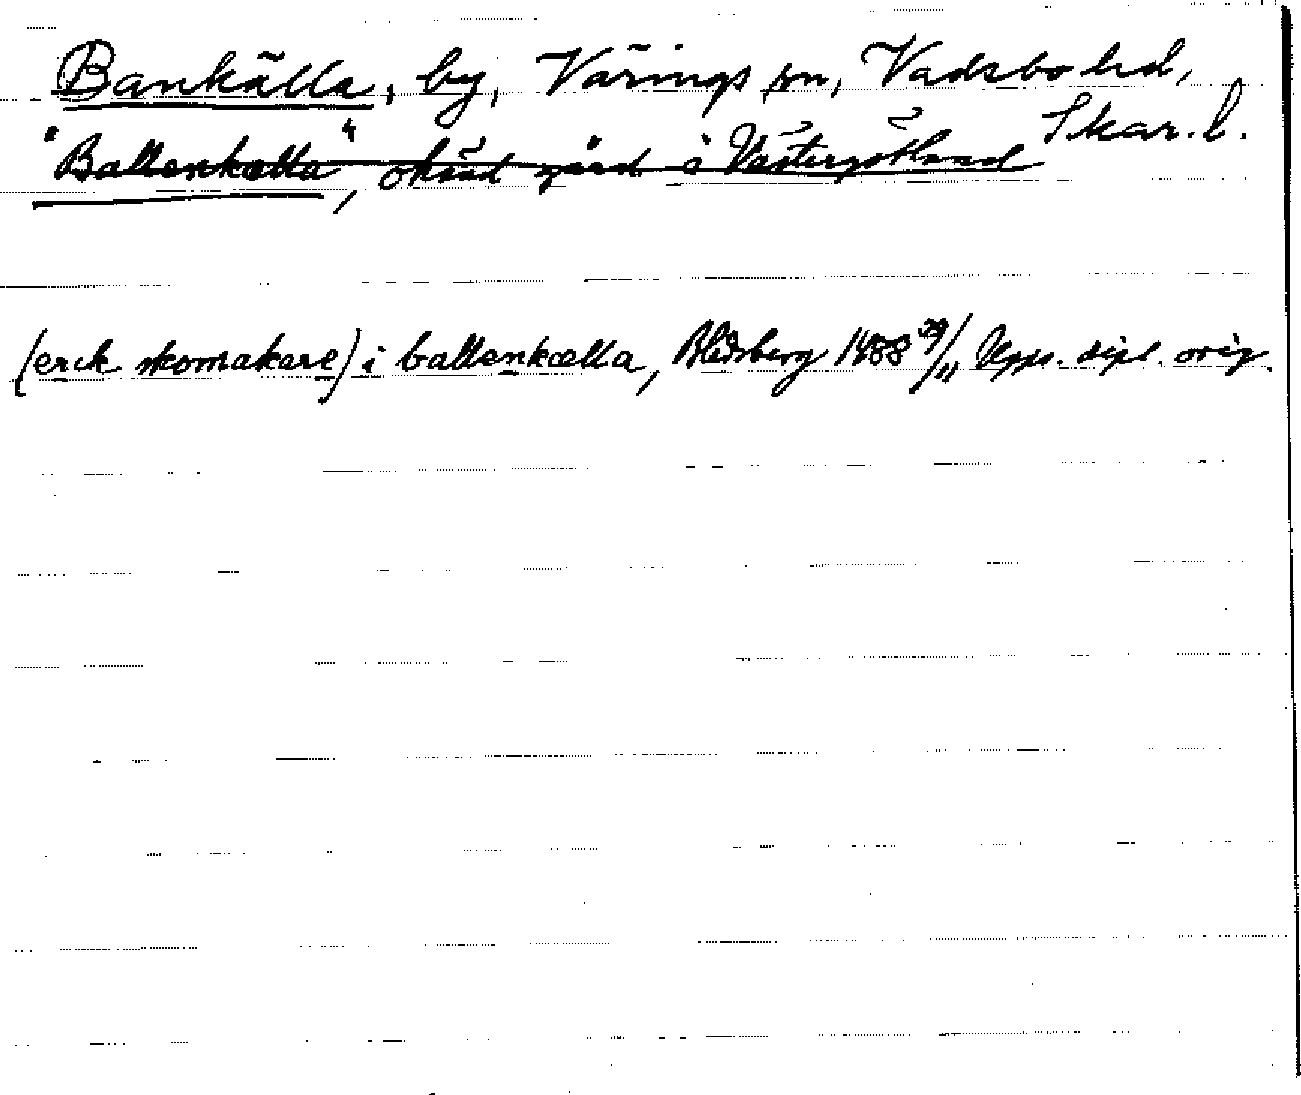 Bankälla, by, Värings sn, Vadsbo hd,
Skar. l.
"Ballenkælla", okänd gård i Västergötland
(erick skomakare) i ballenkælla, Blidsberg 1488 29/11 Upps. dipl. orig.